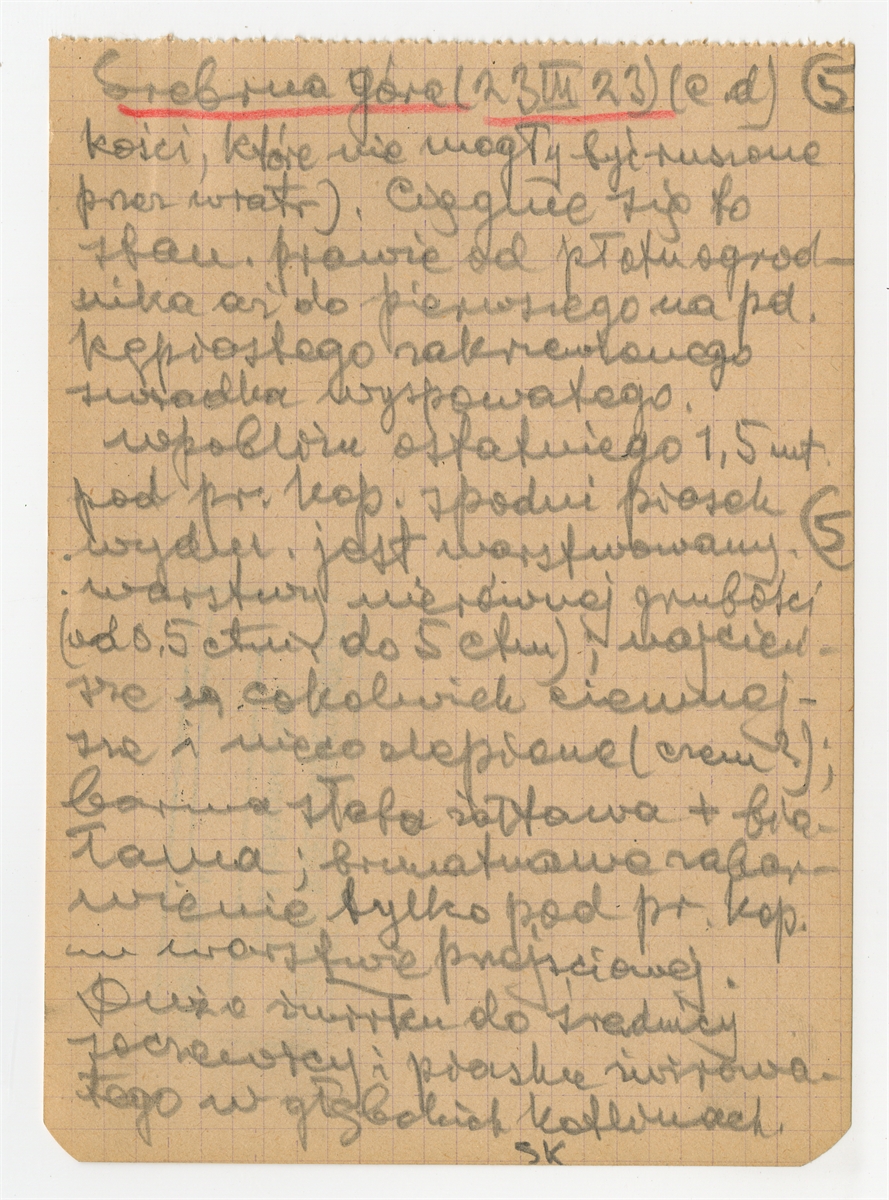 Srebrna góra (23 III 23) (c. d) 5
kości, które nie mogły być ruszone
przez wiatr). Ciągnie się to
stan. prawie od płotu ogrod-
nika aż do pierwszego na pd.
kępiastego zakrzewionego
świadka wyspowatego.
W pobliżu ostatniego 1,5 mt.
pod pr. kop. spodni piasek
wydm. jest warstwowany. 5
warstwy nierównej grubości
(od 0,5 ctm do 5 ctm); najcień-
sze są cokolwiek ciemniej-
sze i nieco zlepione (czem?);
barwa słabo żółtawa + bia-
ława; brunatnawe zabar-
wienie tylko pod pr. kop.
w warstwie przejściowej.
Dużo żwirku do średnicy
soczewicy i piasku żwirowa-
tego w głębokich kotlinach.
SK